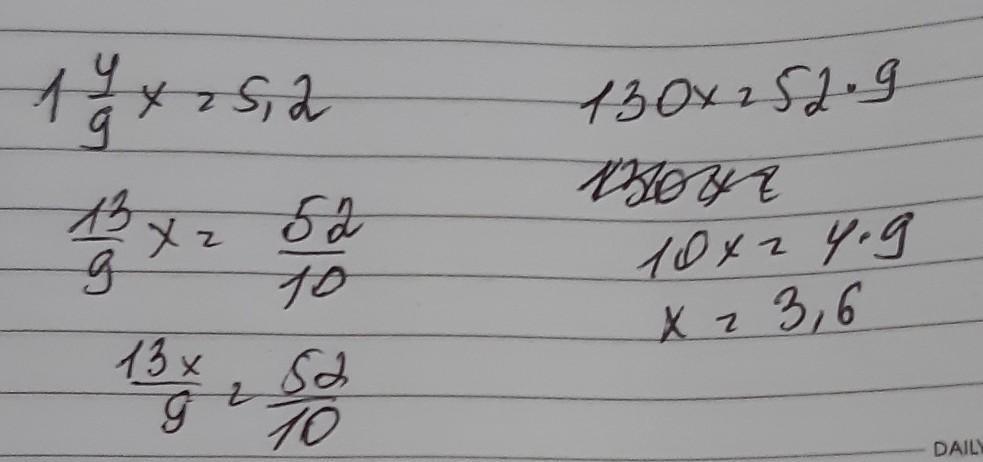 1 4/9 x = 5,2
13/9 x = 52/10
13x/9 = 52/10
130x = 52·9
10x = 4·9
x = 3,6
DAILY